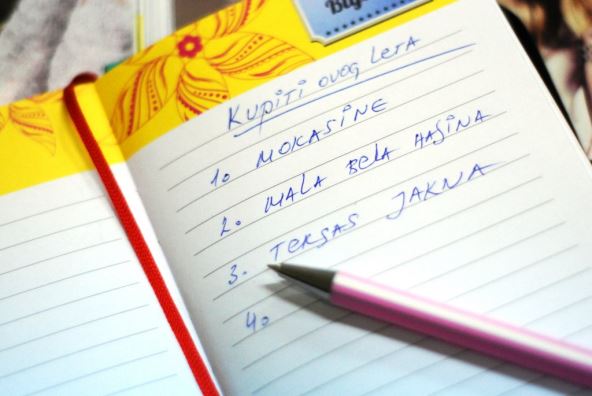 KUPITI OVOG LETA
1. MOKASINE
2. MALA BELA HALJINA
3. TEKSAS JAKNA
4.